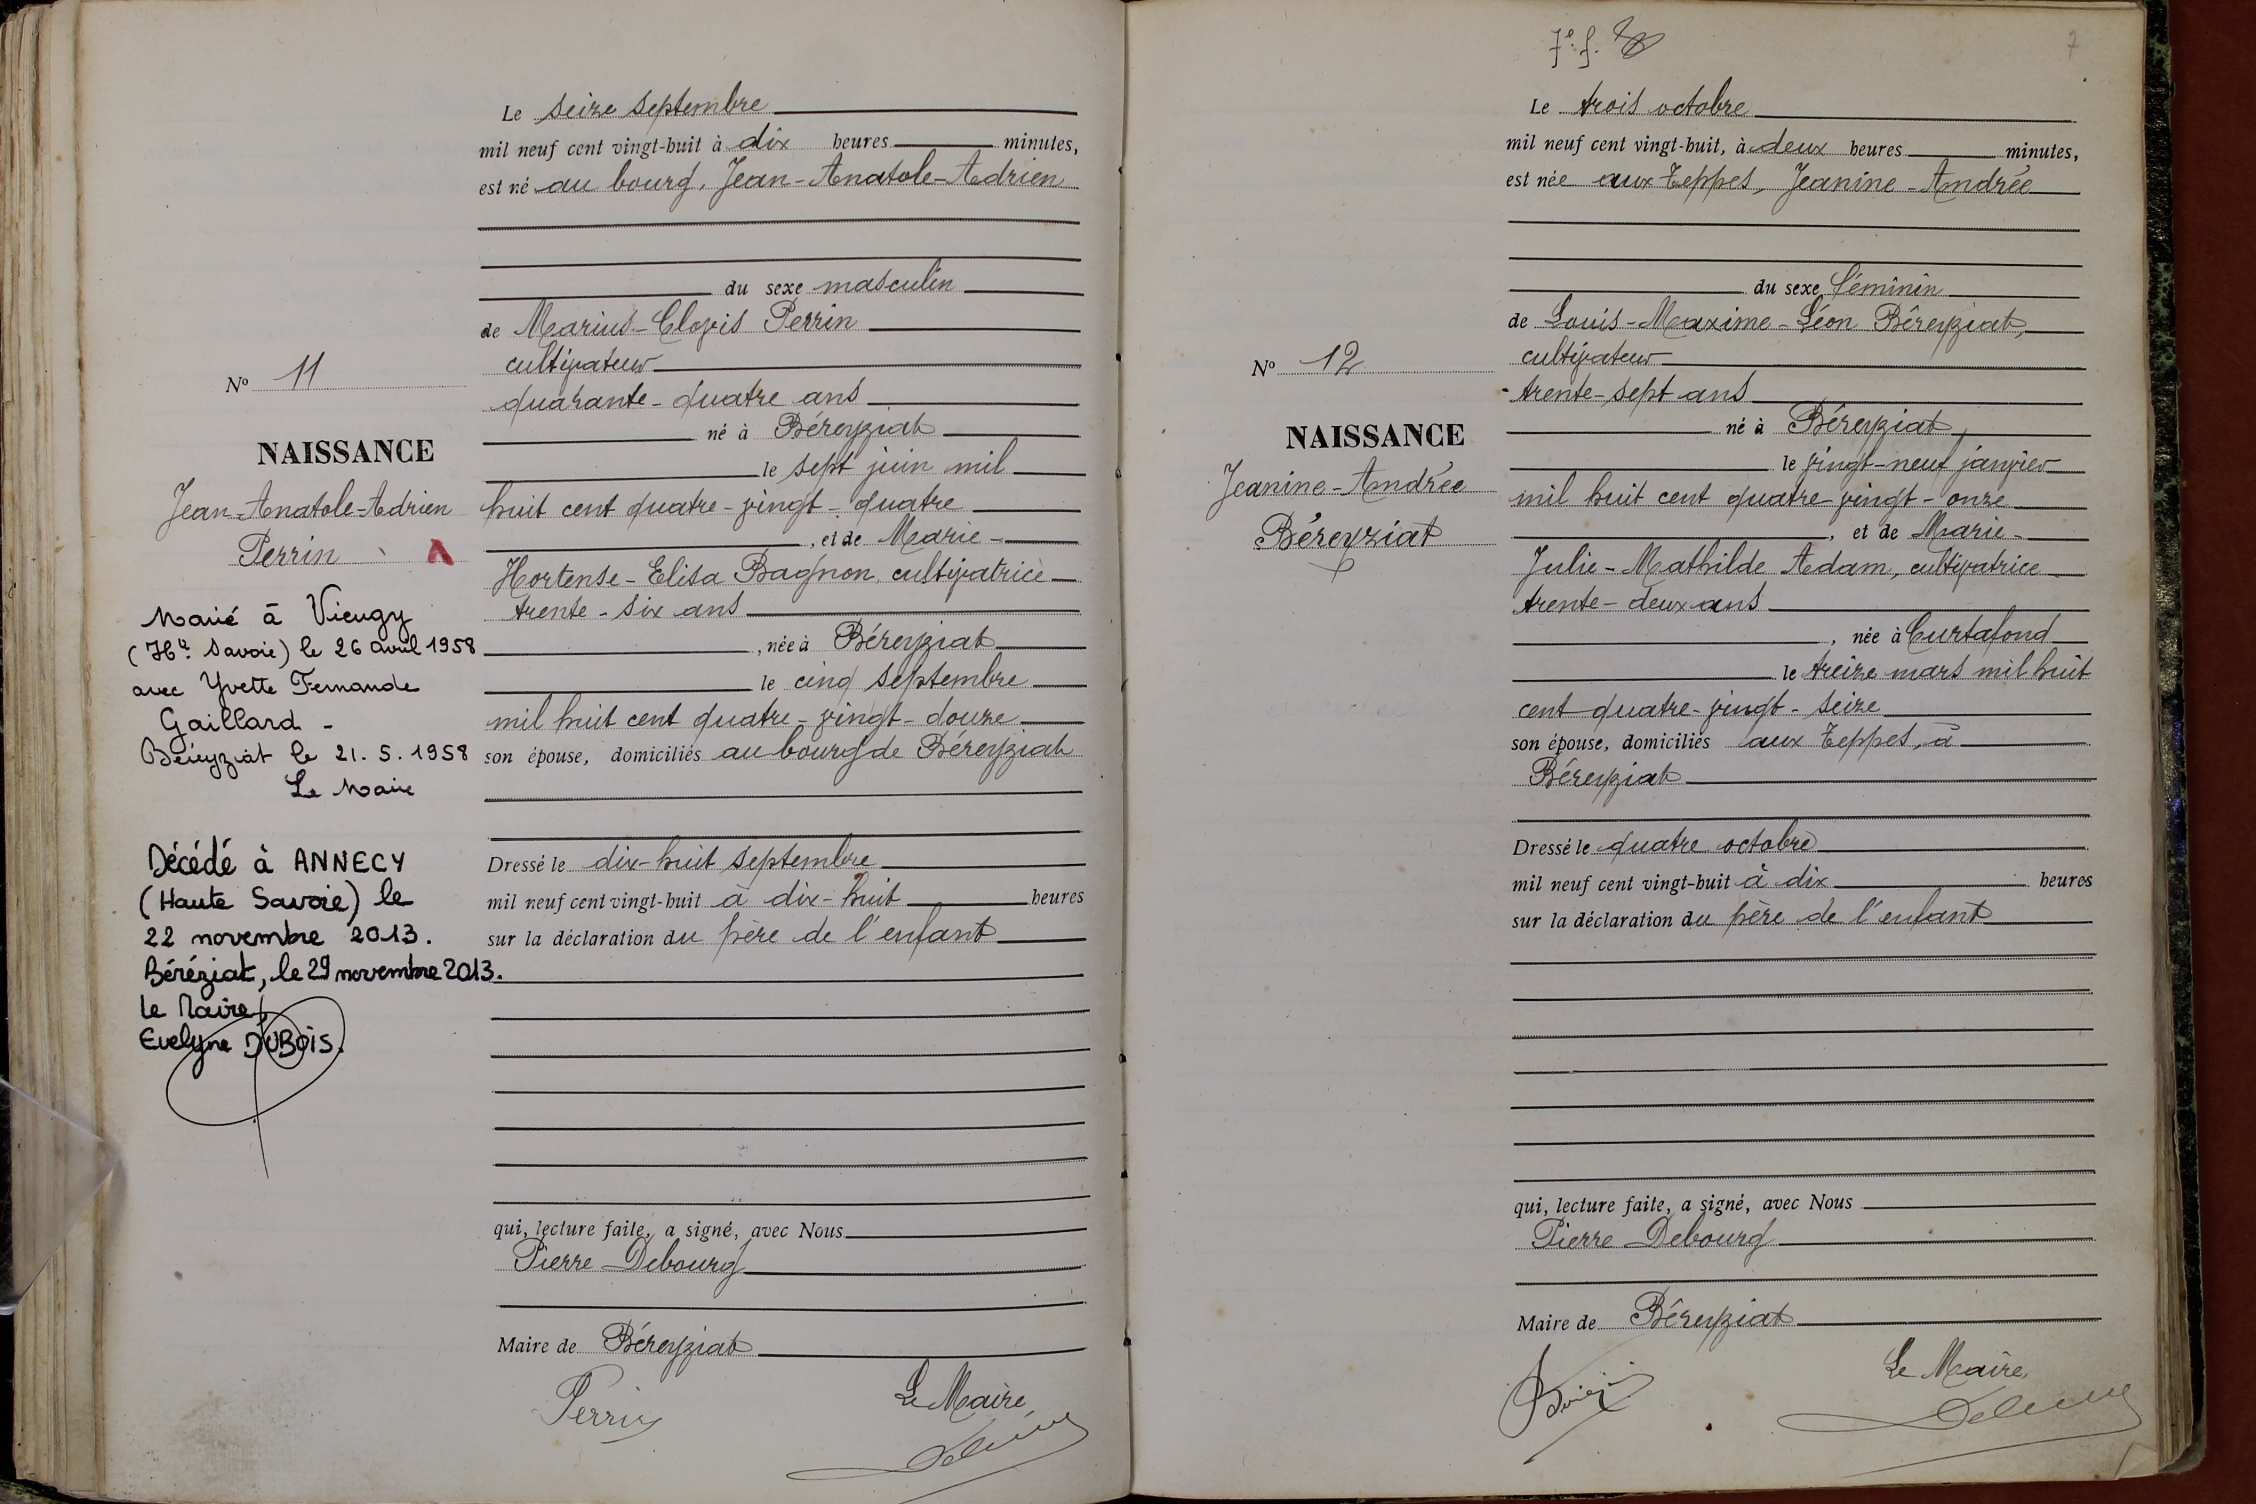 Le seize septembre
mil neuf cent vingt-huit à dix heures minutes,
est né au bourg, Jean-Anatole-Adrien
du sexe masculin
de Marius-Clovis Perrin
cultivateur
quarante-quatre ans
né à Béreyziat
le sept juin mil
huit cent quatre-vingt-quatre
, et de Marie-
Hortense-Elisa Bagnon, cultivatrice
trente-six ans
, née à Béreyziat
le cinq septembre
mil huit cent quatre-vingt-douze
son épouse, domiciliés au bourg de Béreyziat
Dressé le dix-huit septembre
mil neuf cent vingt-huit à dix-huit heures
sur la déclaration du père de l'enfant
qui, lecture faite, a signé, avec Nous
Pierre Debourg
Maire de Béreyziat
Perrin
Le Maire
No 11
NAISSANCE
Jean-Anatole-Adrien
Perrin
Marié à Vieugy
(Hte Savoie) le 26 avril 1958
avec Yvette Fernande
Gaillard -
Béreyziat le 21.5.1958
Le Maire
Décédé à ANNECY
(Haute Savoie) le
22 novembre 2013.
Béréziat, le 29 novembre 2013.
le Maire,
Evelyne DUBOIS.
7e f.
7
Le trois octobre
mil neuf cent vingt-huit, à deux heures minutes,
est née aux Teppes, Jeanine-Andrée
du sexe féminin
de Louis-Maxime-Léon Béreyziat,
cultivateur
trente-sept ans
né à Béreyziat,
le vingt-neuf janvier
mil huit cent quatre-vingt-onze
, et de Marie-
Julie-Mathilde Adam, cultivatrice
trente-deux ans
, née à Curtafond
le treize mars mil huit
cent quatre-vingt-seize
son épouse, domiciliés aux Teppes, à
Béreyziat
Dressé le quatre octobre
mil neuf cent vingt-huit à dix heures
sur la déclaration du père de l'enfant
qui, lecture faite, a signé, avec Nous
Pierre Debourg
Maire de Béreyziat
Le Maire
No 12
NAISSANCE
Jeanine-Andrée
Béreyziat